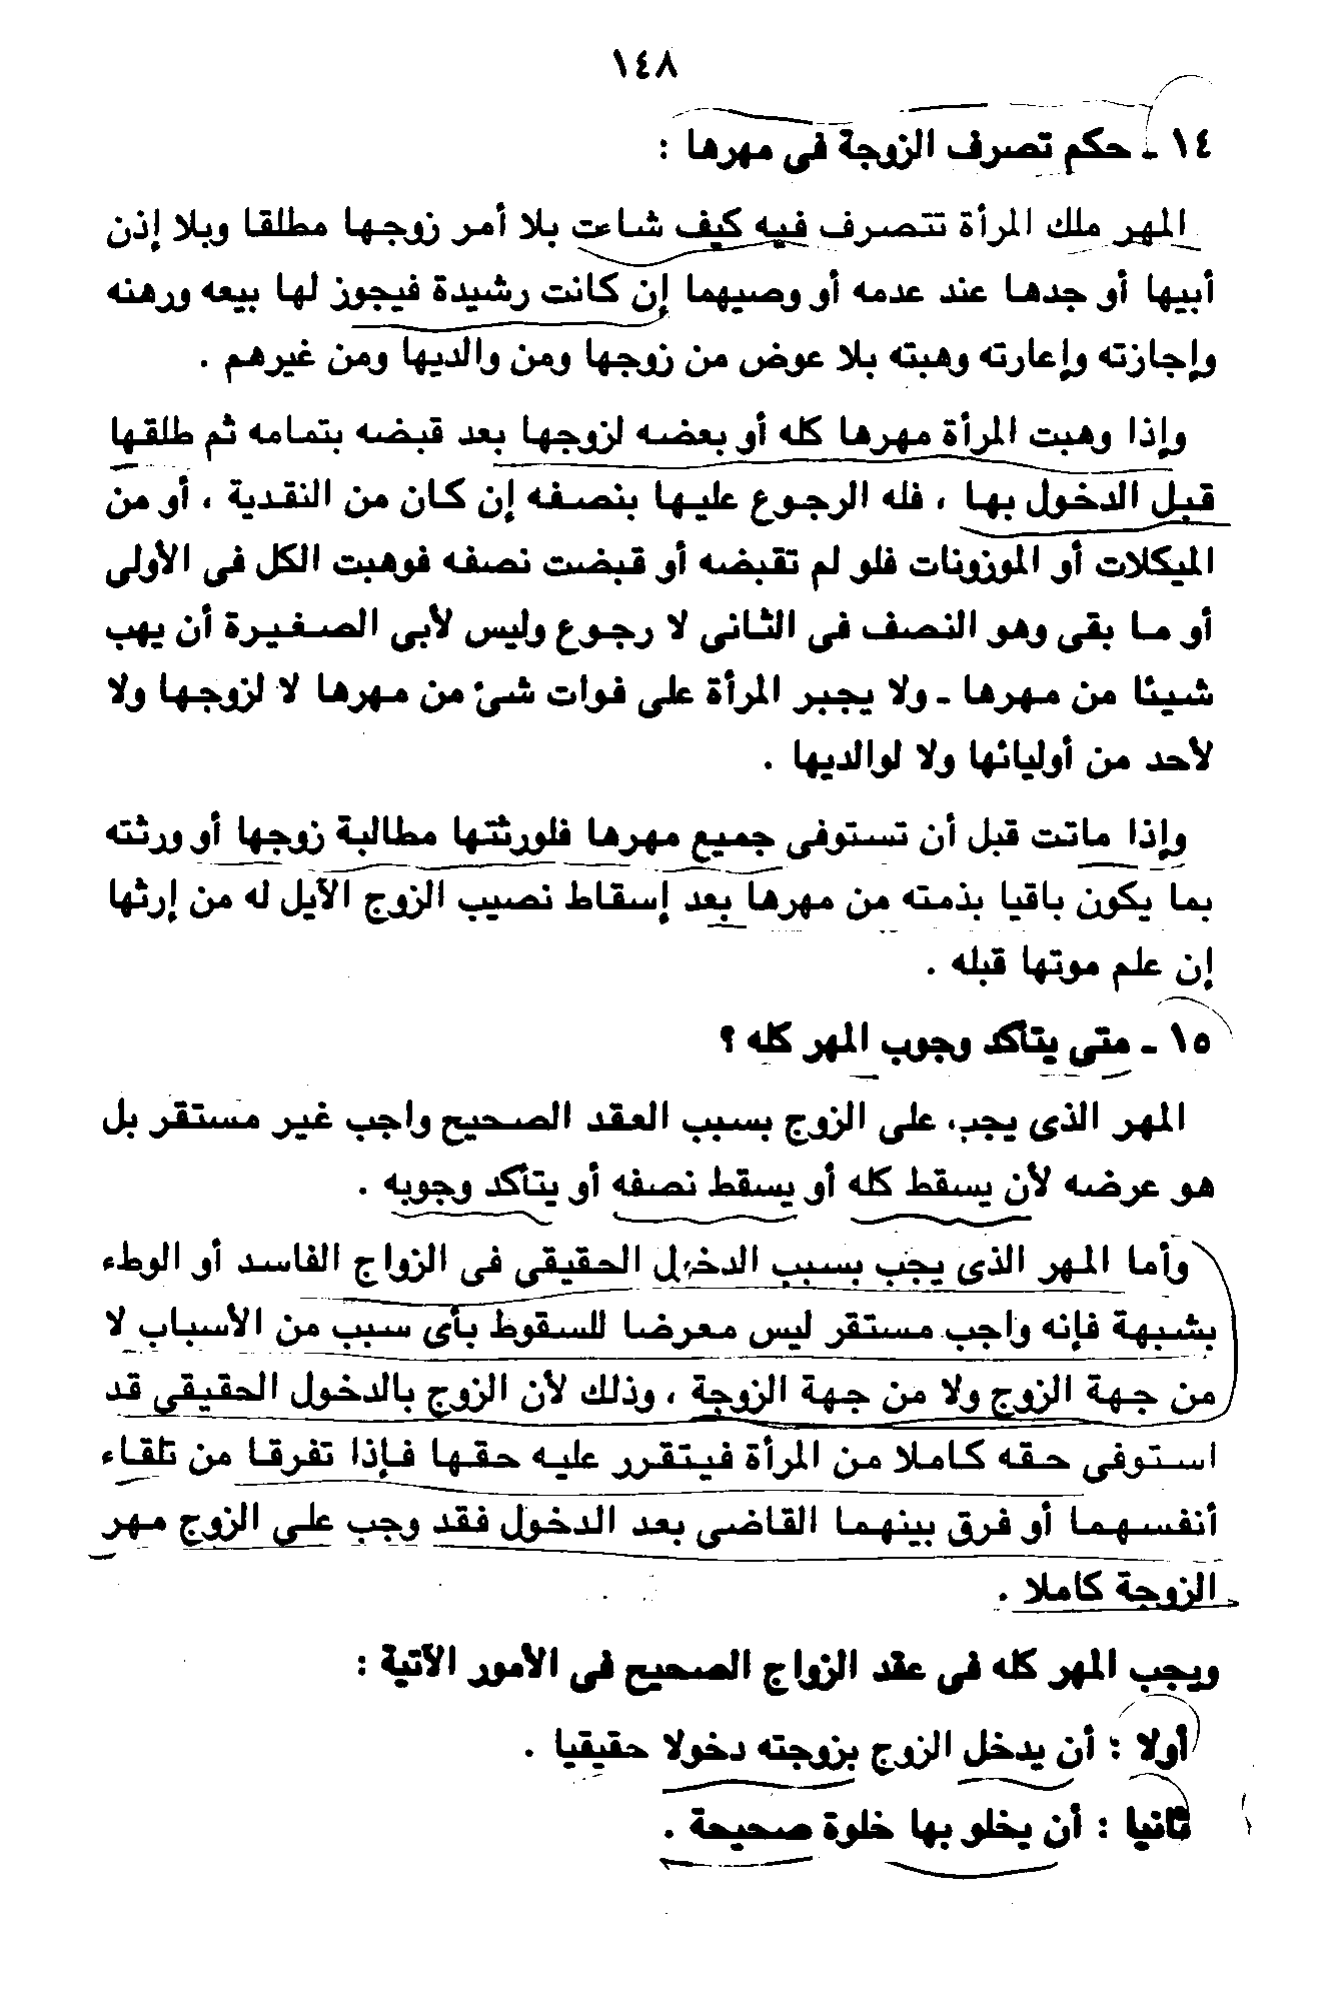 ١٤٨
١٤ ـ حكم تصرف الزوجة فى مهرها :
المهر ملك المرأة تتصرف فيه كيف شاءت بلا أمر زوجها مطلقا وبلا إذن
أبيها أو جدها عند عدمه أو وصيهما إن كانت رشيدة فيجوز لها بيعه ورهنه
وإجازته وإعارته وهبته بلا عوض من زوجها ومن والديها ومن غيرهم .
وإذا وهبت المرأة مهرها كله أو بعضه لزوجها بعد قبضه بتمامه ثم طلقها
قبل الدخول بها ، فله الرجوع عليها بنصفه إن كان من النقدية ، أو من
الميكلات أو الموزونات فلو لم تقبضه أو قبضت نصفه فوهبت الكل فى الأولى
أو ما بقى وهو النصف فى الثانى لا رجوع وليس لأبى الصغيرة أن يهب
شيئا من مهرها ـ ولا يجبر المرأة على فوات شئ من مهرها لا لزوجها ولا
لأحد من أوليائها ولا لوالديها .
وإذا ماتت قبل أن تستوفى جميع مهرها فلورثتها مطالبة زوجها أو ورثته
بما يكون باقيا بذمته من مهرها بعد إسقاط نصيب الزوج الآيل له من إرثها
إن علم موتها قبله .
١٥ ـ متى يتأكد وجوب المهر كله ؟
المهر الذى يجب، على الزوج بسبب العقد الصحيح واجب غير مستقر بل
هو عرضه لأن يسقط كله أو يسقط نصفه أو يتأكد وجوبه .
وأما المهر الذى يجب بسبب الدخول الحقيقى فى الزواج الفاسد أو الوطء
بشبهة فإنه واجب مستقر ليس معرضا للسقوط بأى سبب من الأسباب لا
من جهة الزوج ولا من جهة الزوجة ، وذلك لأن الزوج بالدخول الحقيقى قد
استوفى حقه كاملا من المرأة فيتقرر عليه حقها فإذا تفرقا من تلقاء
أنفسهما أو فرق بينهما القاضى بعد الدخول فقد وجب على الزوج مهر
الزوجة كاملا .
ويجب المهر كله فى عقد الزواج الصحيح فى الأمور الآتية :
أولا : أن يدخل الزوج بزوجته دخولا حقيقيا .
ثانيا : أن يخلو بها خلوة صحيحة .